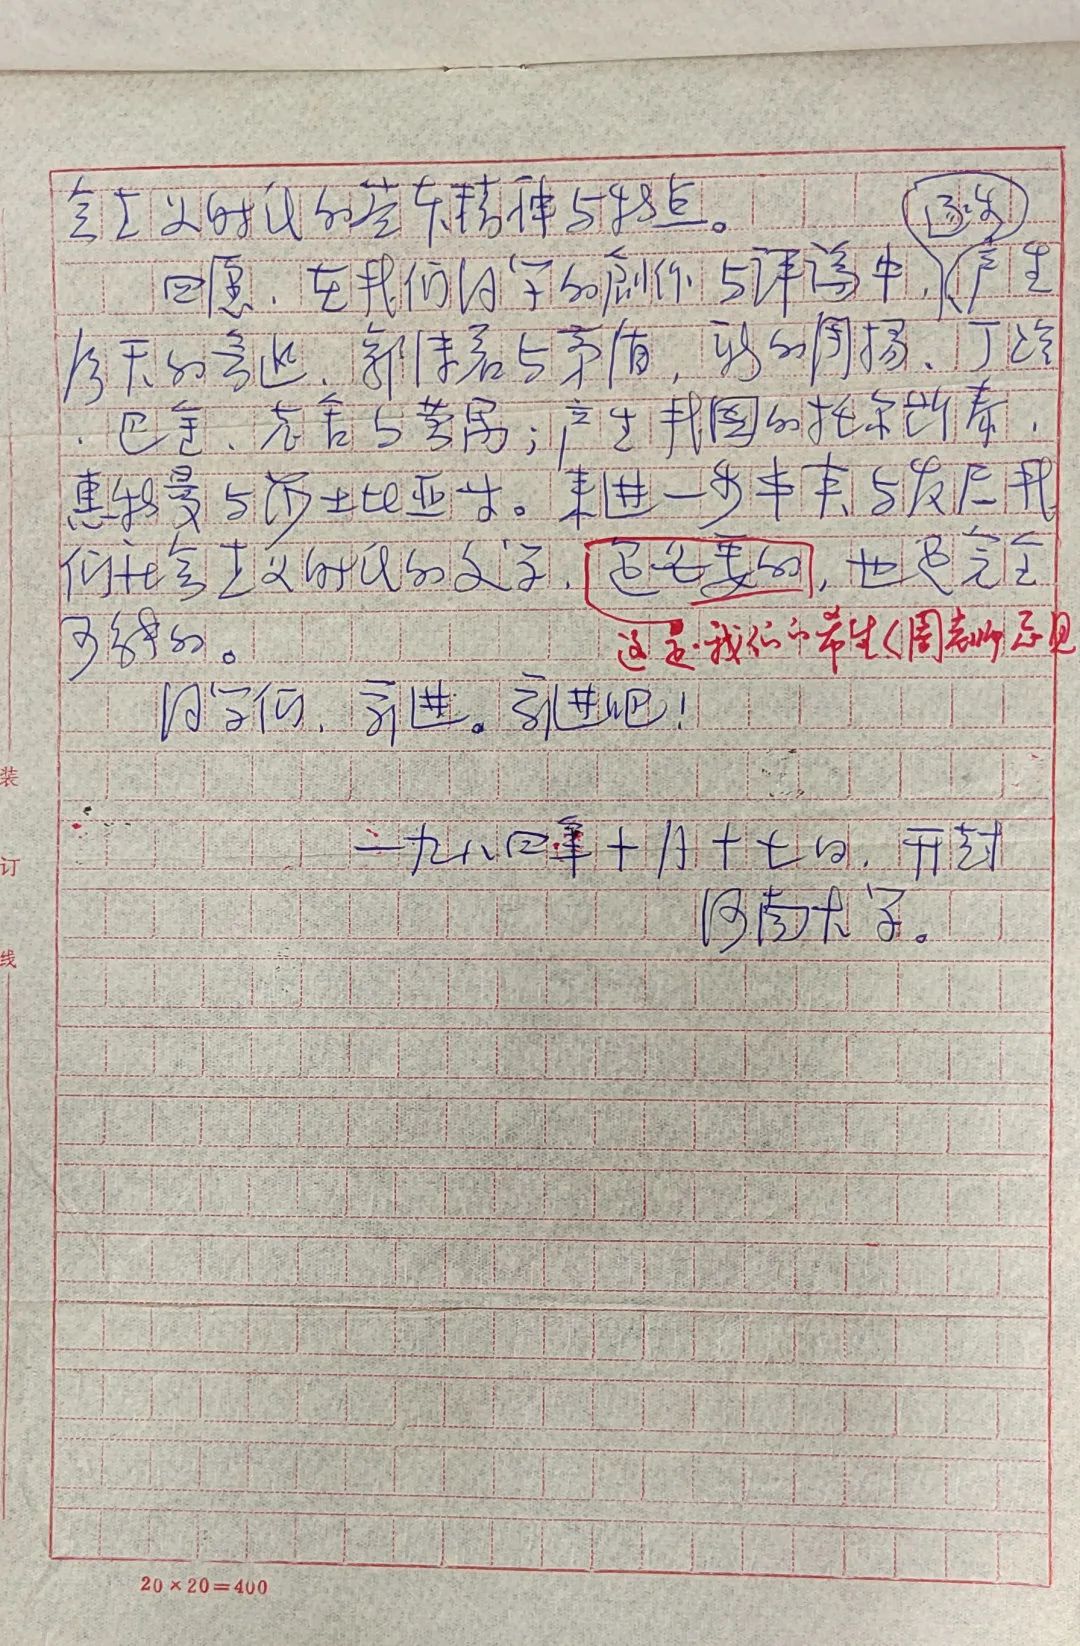 会主义时代的艺术精神与特点。
逐步
四愿，在我们同学的创作与评论中，产生
今天的鲁迅、郭沫若与茅盾，新的周扬、丁玲
、巴金、老舍与曹禺；产生我国的托尔斯泰、
惠特曼与莎士比亚等。来进一步丰富与发展我
们社会主义时代的文学，是必要的，也是完全
可能的。
这是我们的希望（周老师意见
同学们，前进。前进吧！
一九八四年十月十七日，开封
河南大学。
装
订
线
20×20=400